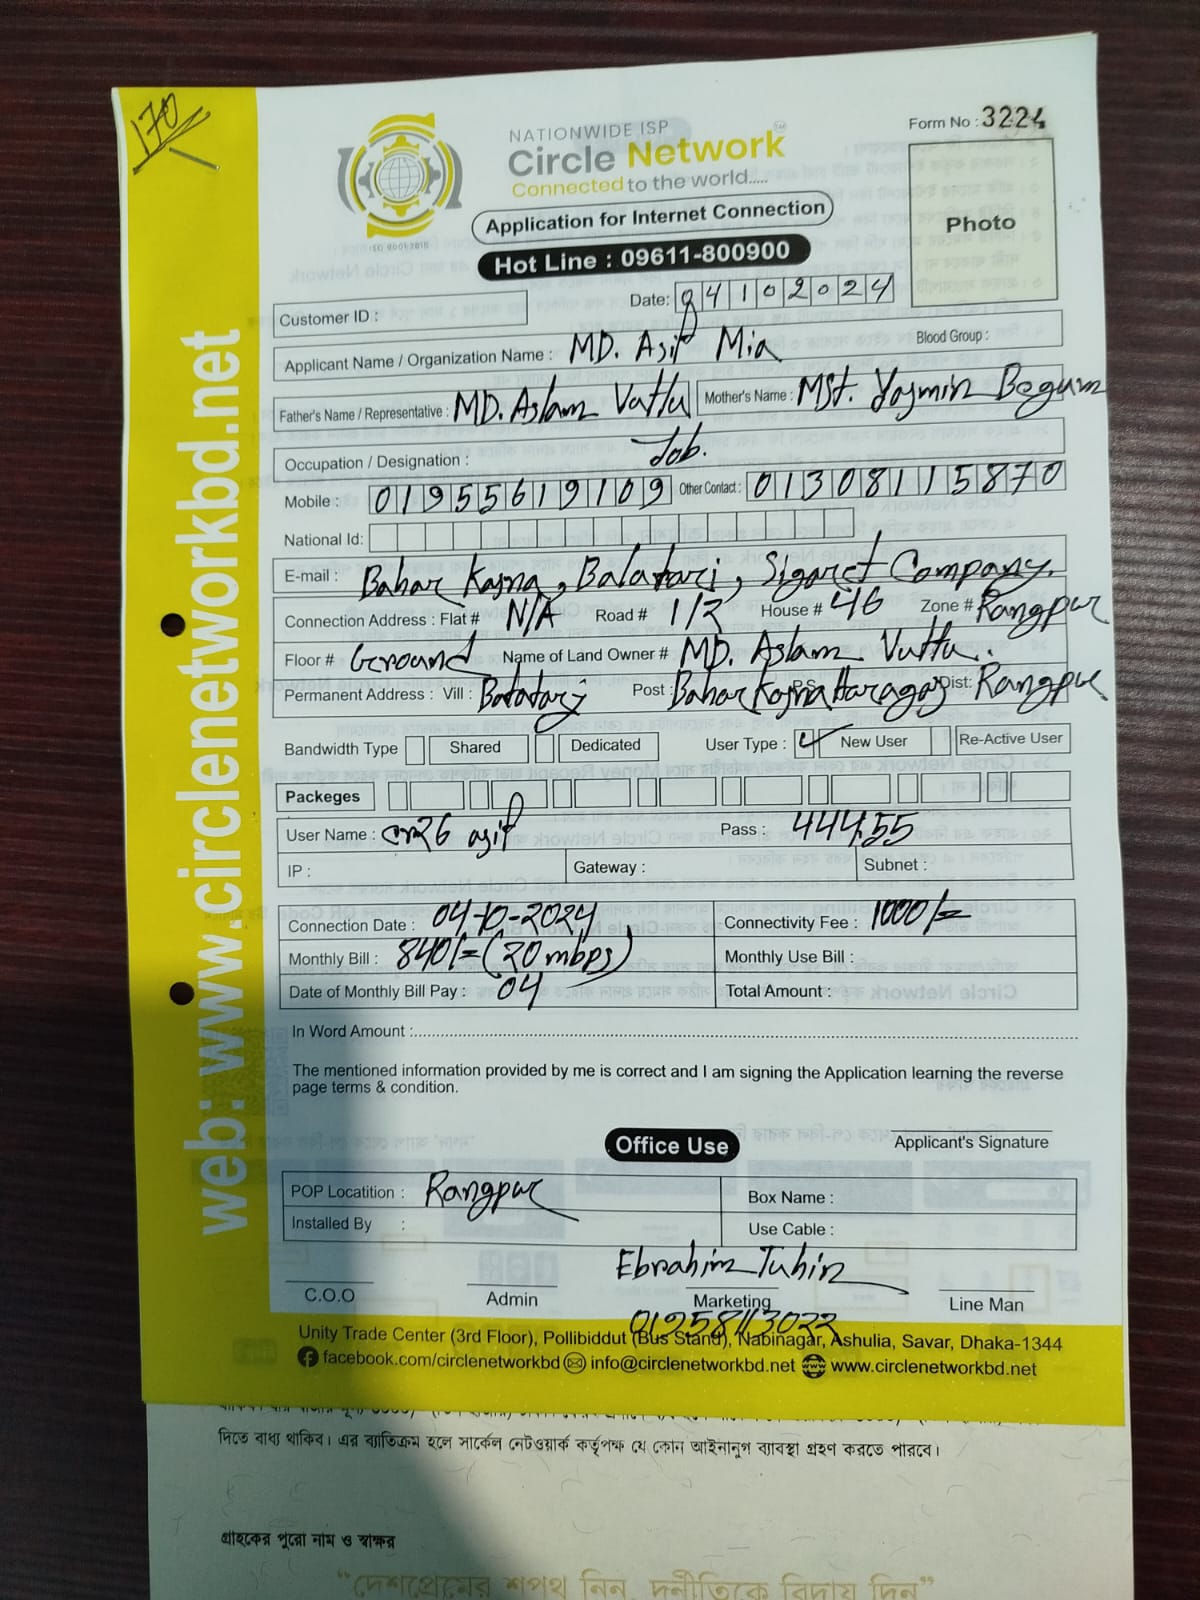 170
NATIONWIDE ISP
Circle Network
Connected to the world.....
ISO 9001:2015
Form No : 3224
Photo
Application for Internet Connection
Hot Line : 09611-800900
Date: 04102024
Customer ID :
Applicant Name / Organization Name : MD. Asif Mia Blood Group :
Father's Name / Representative : MD. Aslam Vattu Mother's Name : Mst. Yasmin Begum
Occupation / Designation : Job.
Mobile : 01955619109 Other Contact : 01308115870
National Id:
E-mail : Bahar Kasna, Balatari, Sigaret Company.
Connection Address : Flat # N/A Road # 1/2 House # 46 Zone # Rangpur
Floor # Ground Name of Land Owner # MD. Aslam Vattu.
Permanent Address : Vill : Balatari Post : Bahar Kasna P.S: Haragaz Dist: Rangpur
Bandwidth Type Shared Dedicated User Type : New User Re-Active User
Packeges
User Name : cr26 asif Pass : 444455
IP : Gateway : Subnet :
Connection Date : 04-10-2024 Connectivity Fee : 1000/=
Monthly Bill : 840/= (20 mbps) Monthly Use Bill :
Date of Monthly Bill Pay : 04 Total Amount :
In Word Amount :
The mentioned information provided by me is correct and I am signing the Application learning the reverse
page terms & condition.
Office Use
Applicant's Signature
POP Locatition : Rangpur Box Name :
Installed By : Use Cable :
Ebrahim Tuhin
C.O.O Admin Marketing Line Man
Unity Trade Center (3rd Floor), Pollibiddut (Bus Stand), Nabinagar, Ashulia, Savar, Dhaka-1344
facebook.com/circlenetworkbd info@circlenetworkbd.net www.circlenetworkbd.net
web: www.circlenetworkbd.net
দিতে বাধ্য থাকিব। এর ব্যতিক্রম হলে সার্কেল নেটওয়ার্ক কর্তৃপক্ষ যে কোন আইনানুগ ব্যাবস্থা গ্রহণ করতে পারবে।
গ্রাহকের পুরো নাম ও স্বাক্ষর
“দেশপ্রেমের শপথ নিন, দুর্নীতিকে বিদায় দিন”